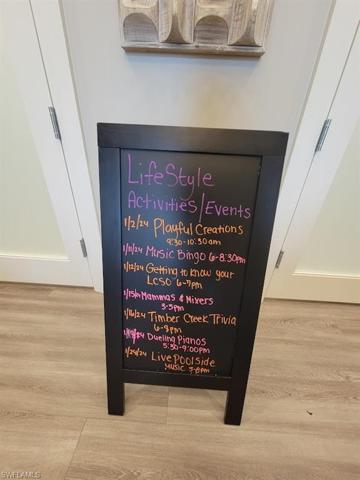 LifeStyle
Activities/Events
1/2/24 Playful Creations
9:30-10:30am
1/11/24 Music Bingo 6-8:30pm
1/12/24 Getting to know your
LCSO 6-7pm
Mammas & Mixers
3-5pm
1/16/24 Timber Creek Trivia
6-9pm
Dueling Pianos
5:30-9:00pm
Live POOlSide
Music
SWFLAMLS